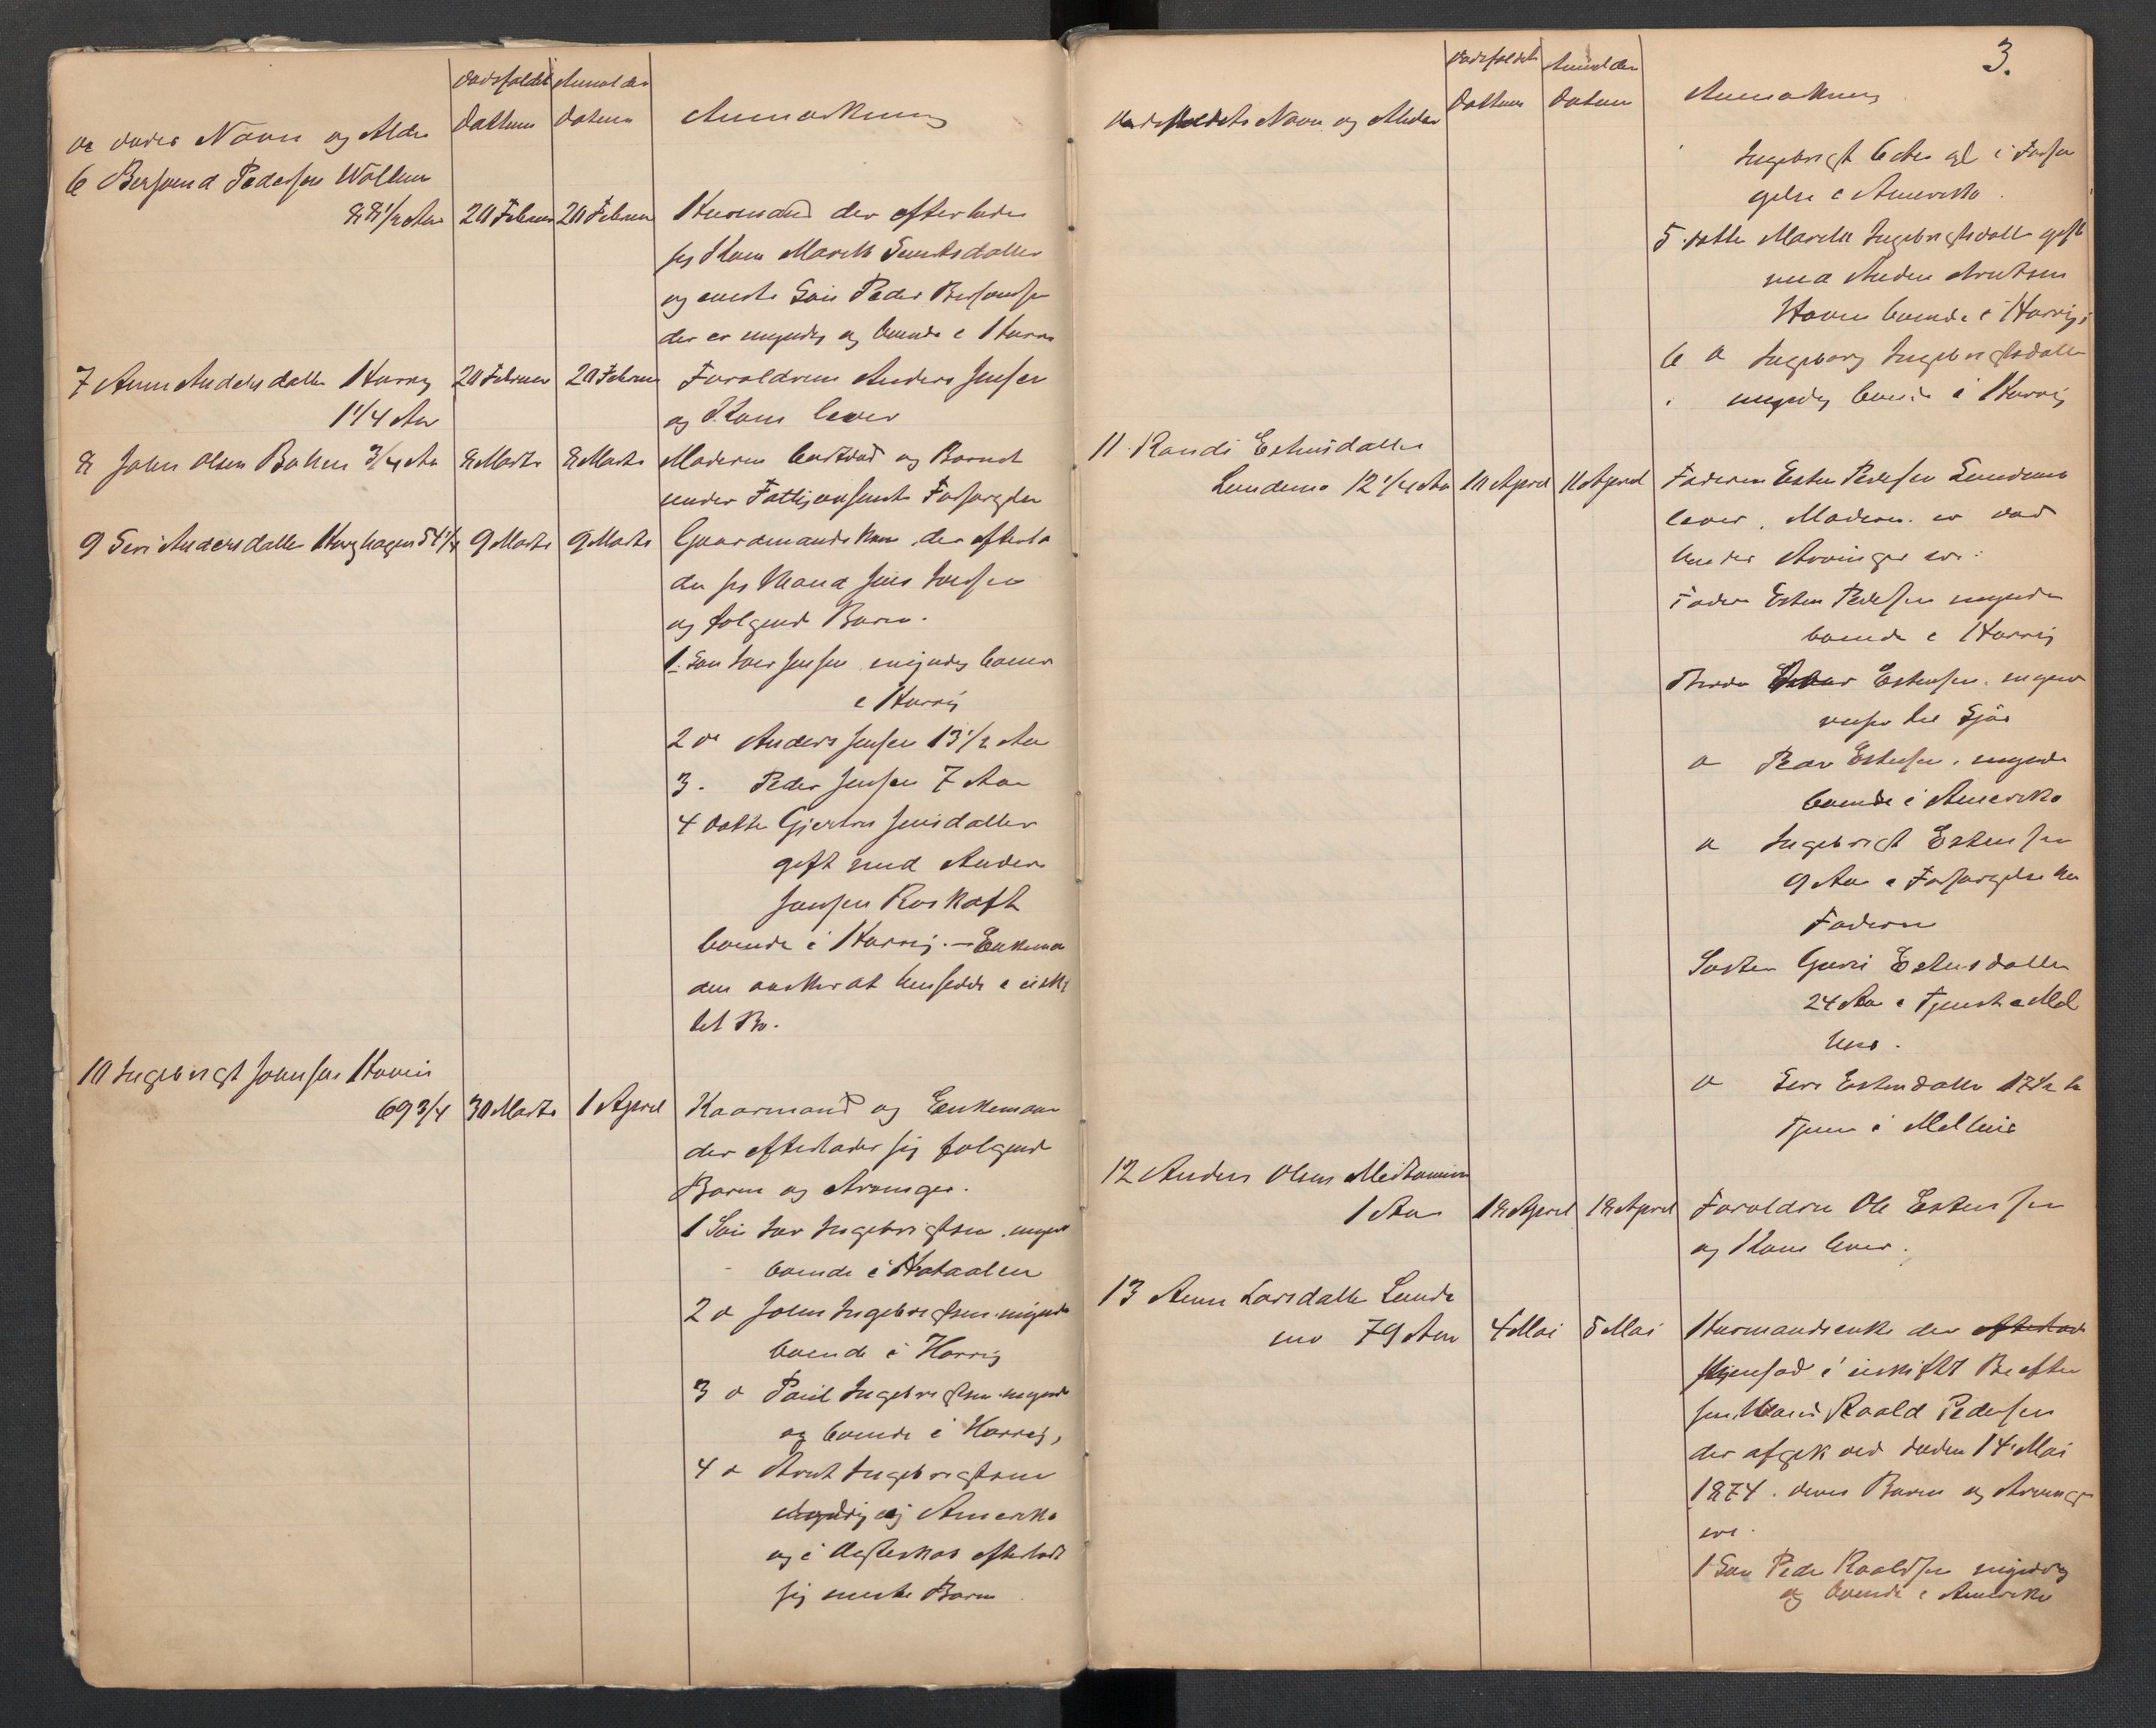 de dødes Navn og Alder
Dødsfaldets Datum
Anmeldes Datum
Anmerkning
6 Bersvend Pedersen Wollum
88 1/2 Aar
20 Februar
20 Februar
Huusmand der efterlader
sig Kone Marith
og eneste Søn Peder Bersvendsen
der er myndig og boende i Horrig
7 Anne Andersdatter Horrig
1 1/4 Aar
20 Februar
20 Februar
Foræoldrene Anders Jensen
og Kone lever
8 John Olsen Bakken 3/4 Aar
8 Marts
8 Marts
Moderen bortdød og Barnet
under Fattigvæsenets Forsørgelse
9 Siri Andersdatter Horghagen 54 1/4
9 Marts
9 Marts
Gaardmandskone der efterla
der sig Mand Jens Iversen
og følgende Børn.
1. Søn Iver Jensen myndig boende
i Horrig
2 do Anders Jensen 13 1/2 Aar
3. Peder Jensen 7 Aar
4 Datter Gjertru Jensdatter
gift med Anders
Jensen Roskaft
boende i Horrig. – Enkeman
den ønsker at hensidde i uskif
tet Bo.
10 Ingebrigt Johnsen Hovin
69 3/4
30 Marts
1 April
Kaarmand og Enkemand
der efterlader sig følgende
Børn og Arvinger.
1 Søn Iver Ingebrigtsen. myndig
boende i Holtaalen
2 do John Ingebrigtsen. myndig
boende i Horrig
3 do Paul Ingebrigtsen. myndig
og boende i Horrig,
4 do Arnt Ingebrigtsen
myndig i Amerika
og i Ægteskab efterladt
sig eneste Barn
3.
Dødsfaldets Navn og Alder
Dødsfaldets Datum
Anmeldes Datum
Anmerkning
Ingebrigt 6 Aar gl i Forsør
gelse i Amerika.
5 Datter Marith Ingebrigtsdatter gift
med Anders Arntsen
Hovin boende i Horrig.
6 do Ingeborg Ingebrigtsdatter
myndig boende i Horrig
11. Randi Estensdatter
Lundemo 12 1/4 Aar
10 April
11 April
Faderen Esten Pedersen Lundemo
lever, Moderen er død
hendes Arvinger ere:
Fader Esten Pedersen myndig
boende i Horrig
Broder Estensen. myndig
reiser til Sjøs
do Peder Estensen. myndig
boende i Amerika
do Ingebrigt Estensen
9 Aar i Forsørgelse hos
Faderen
Søster Guri Estensdatter
24 Aar i Tjeneste i Mel
huus.
do Siri Estensdatter 17 1/2 Aar
Tjener i Melhuus
12 Anders Olsen
1 Aar
18 April
18 April
Foræoldrene Ole Estensen
og Kone lever.
13 Anne Larsdatter Lunde
mo 79 Aar
4 Mai
5 Mai
Huusmandsenke der efterlod
hensad i uskiftet Bo efter
sin Mand Roald Pedersen
der afgik ved døden 14 Mai
1874. deres Børn og Arvinger
ere.
1 Søn Peder Roaldsen myndig
og boende i Amerika